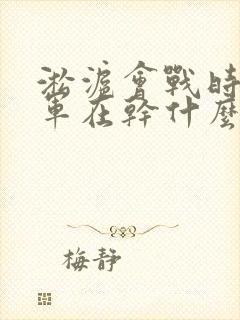 淞滬會戰時
軍在幹什麼
梅靜